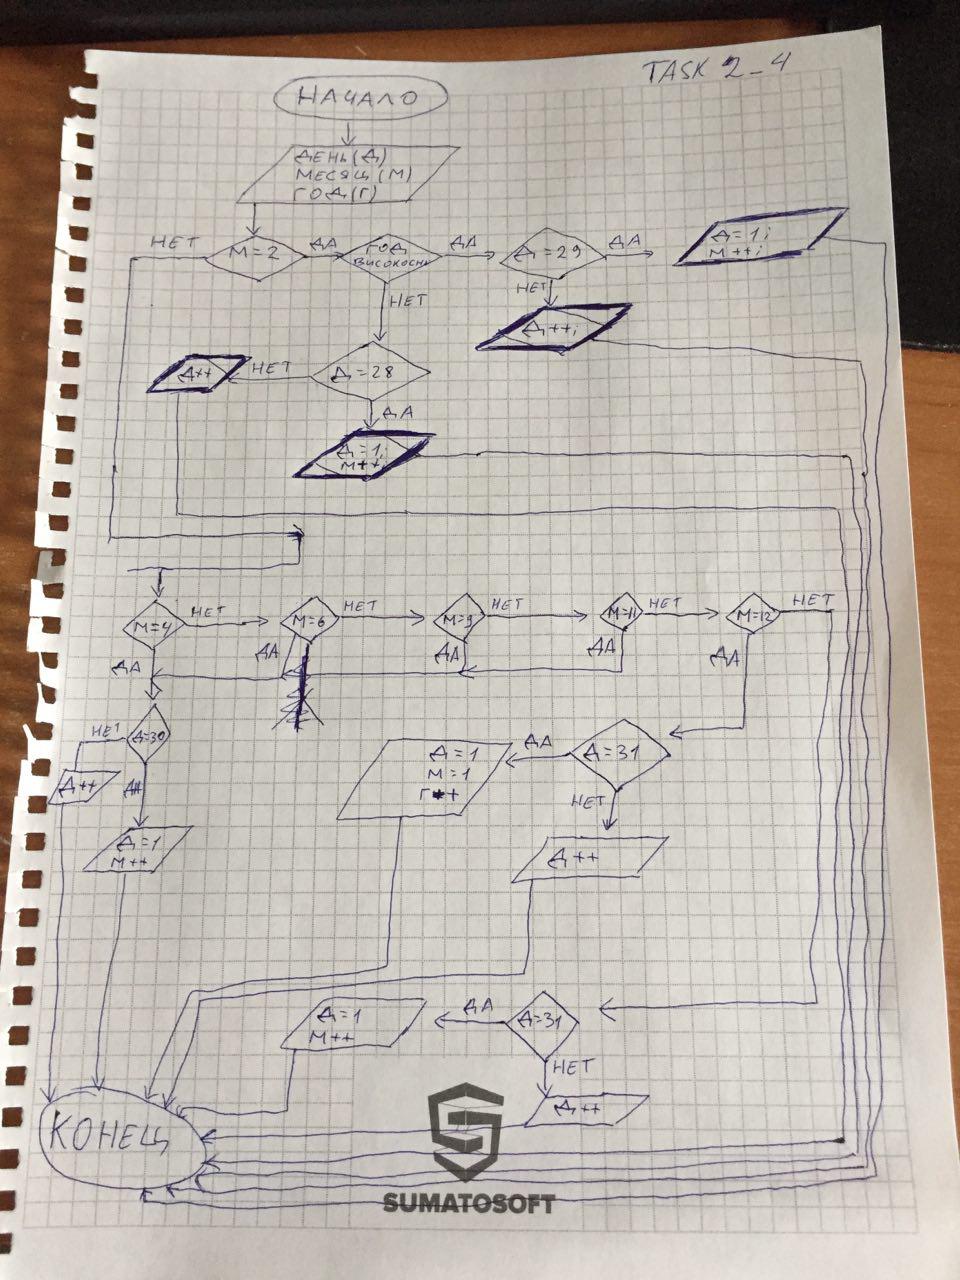 TASK 2_4
НАЧАЛО
ДЕНЬ(Д)
МЕСЯЦ(М)
ГОД(Г)
НЕТ
М=2
ДА
ГОД
ВИСОКОСН
ДА
Д=29
ДА
Д=1;
М++;
НЕТ
НЕТ
Д++;
Д++
НЕТ
Д=28
ДА
Д=1;
М++;
М=4
НЕТ
М=6
НЕТ
М=9
НЕТ
М=11
НЕТ
М=12
НЕТ
ДА
ДА
ДА
ДА
ДА
НЕТ
Д=30
Д++
ДА
Д=1
М++
Д=1
М=1
Г++
ДА
Д=31
НЕТ
Д++
Д=1
М++
ДА
Д=31
НЕТ
Д++
КОНЕЦ
SUMATOSOFT